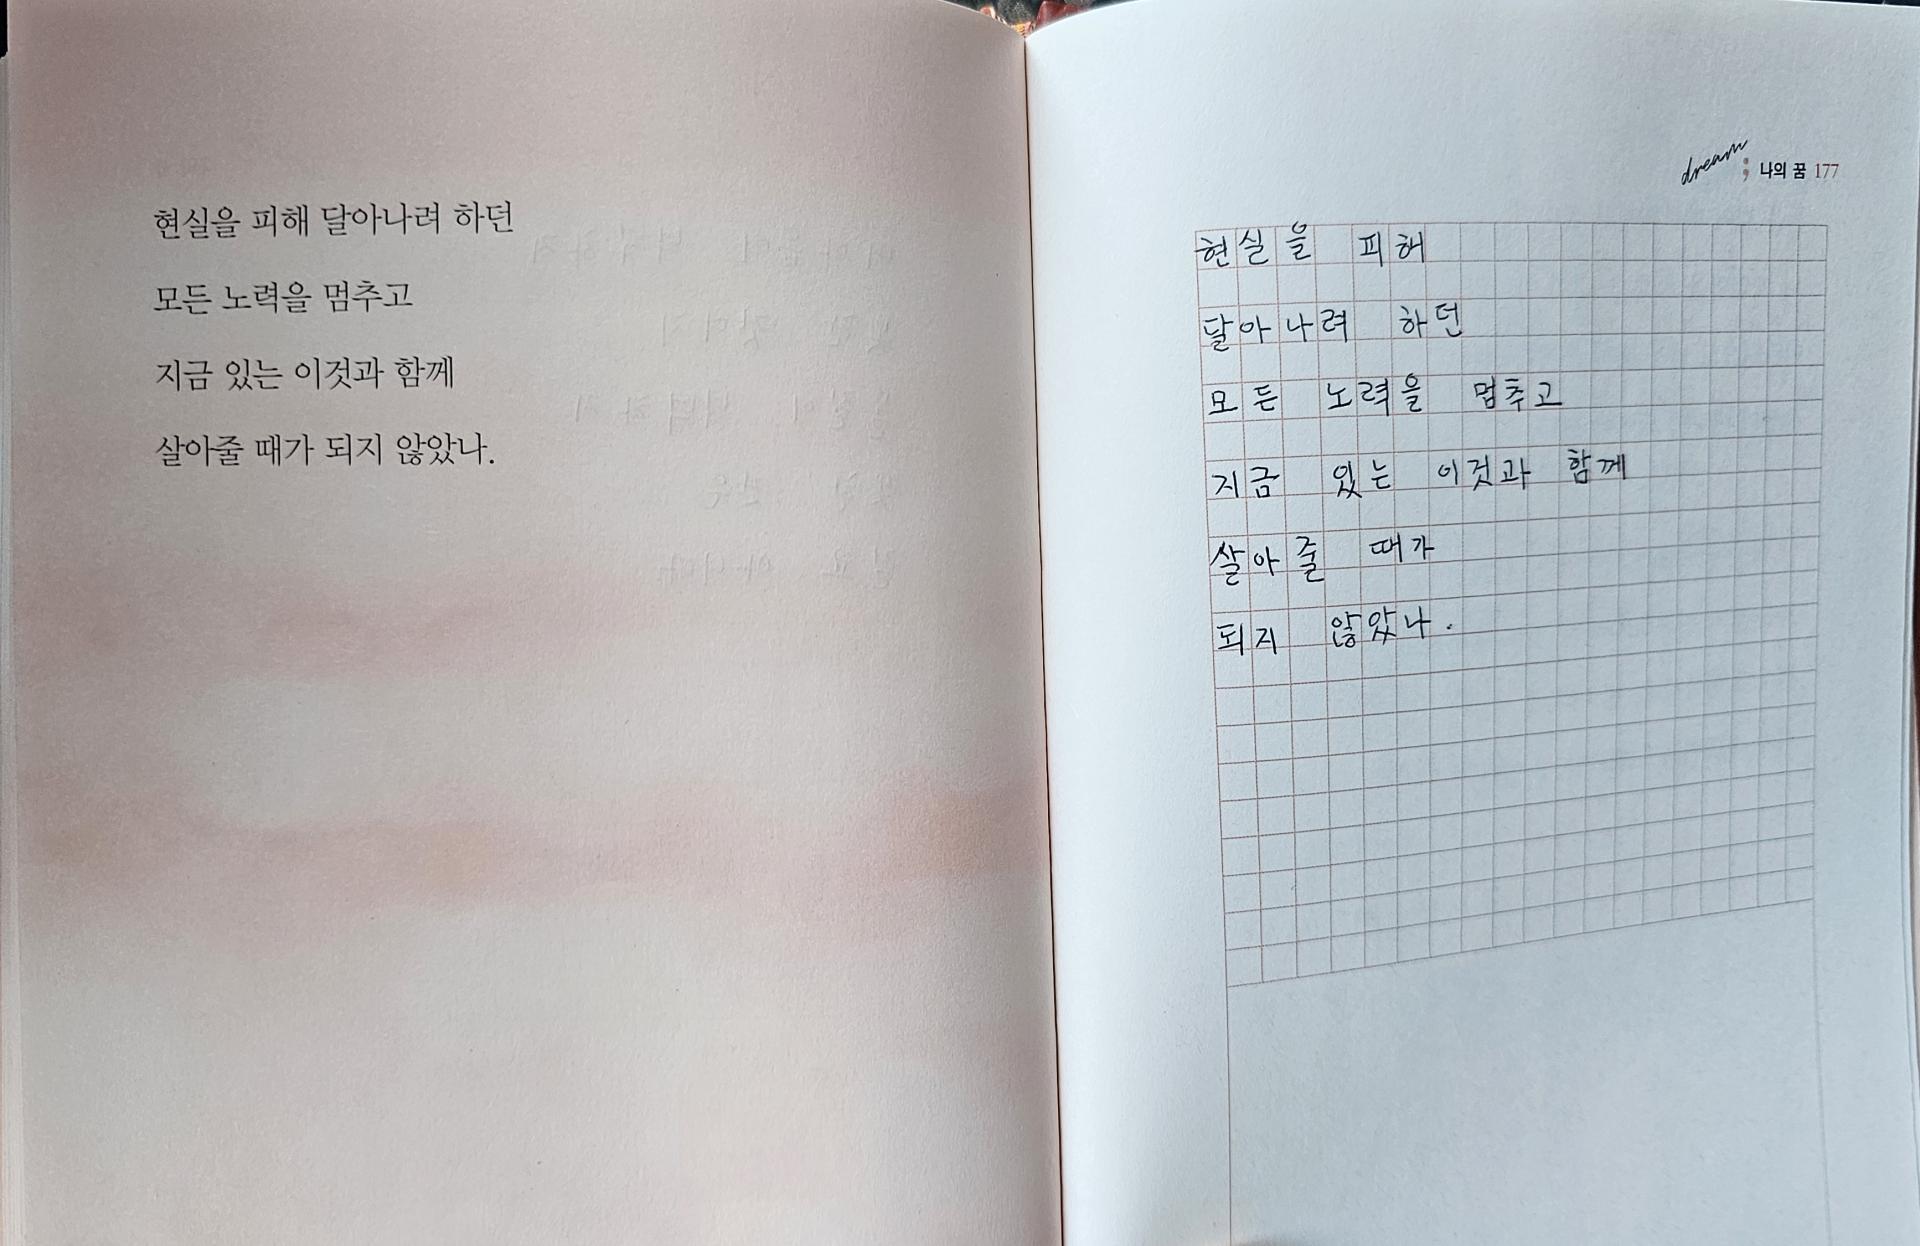 현실을 피해 달아나려 하던
모든 노력을 멈추고
지금 있는 이것과 함께
살아줄 때가 되지 않았나.
dream ; 나의 꿈 177
현실을 피해
달아나려 하던
모든 노력을 멈추고
지금 있는 이것과 함께
살아줄 때가
되지 않았나.